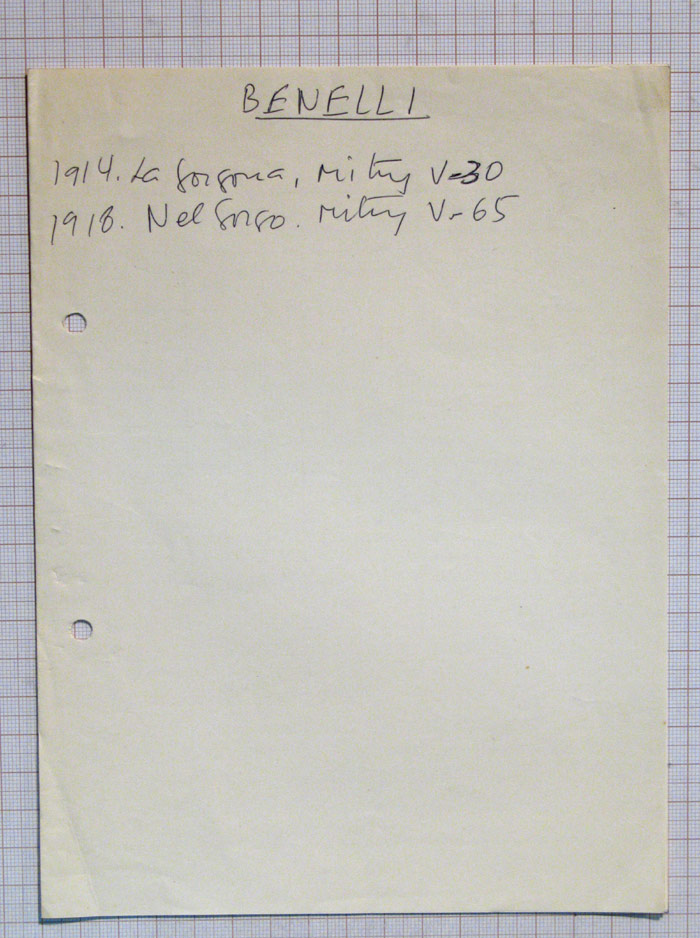 BENELLI
1914. La Gorgona, Mitry V-30
1918. Nel Gorgo. Mitry V-65